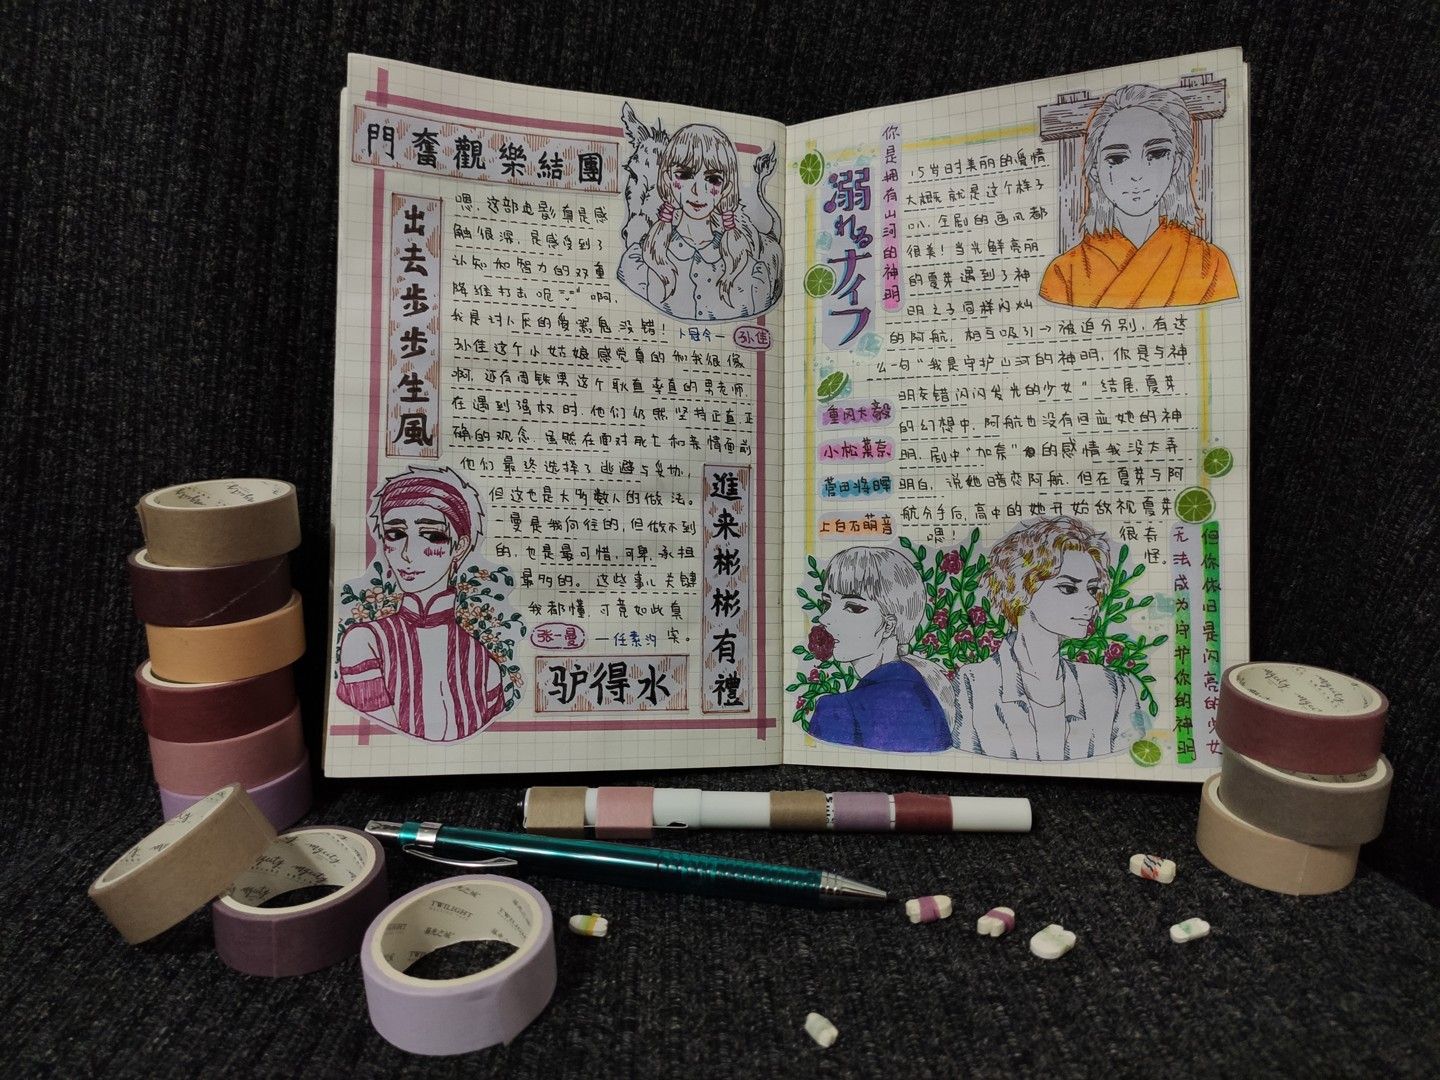 門奮觀樂結團
出去步步生風
嗯,这部电影真是感
触很深,是感受到了
认知和智力的双重
降维打击呃 啊,
我是讨人厌的爱哭鬼没错!
卜冠今—孙佳
孙佳这个小姑娘感觉真的和我很像
啊,还有周铁男这个耿直率直的男老师.
在遇到强权时,他们仍然坚持正直正
确的观念.虽然在面对死亡和亲情面前
他们最终选择了逃避与妥协,
但这也是大多数人的做法。
一曼是我向往的,但做不到
的,也是最可惜,可卑,承担
最多的。这些事儿关键
我都懂,可竟如此真
实。
张一曼—任素汐
進来彬彬有禮
驴得水
溺れるナイフ
你是拥有山河的神明
15岁时美丽的爱情
大概就是这个样子
叭.全剧的画风都
很美!当光鲜亮丽
的夏芽遇到了神
明之子同样闪灿
的阿航,相互吸引→被迫分别,有这
么一句“我是守护山河的神明,你是与神
明交错闪闪发光的少女”结尾,夏芽
的幻想中,阿航也没有回应她的神
明.剧中“加奈”的感情我没太弄
明白,说她暗恋阿航,但在夏芽与阿
航分手后,高中的她开始敌视夏芽
嗯!
很奇
怪。
重冈大毅
小松菜奈
菅田将晖
上白石萌音
但你依旧是闪亮的少女
无法成为守护你的神明
TWILIGHT
暮光之城